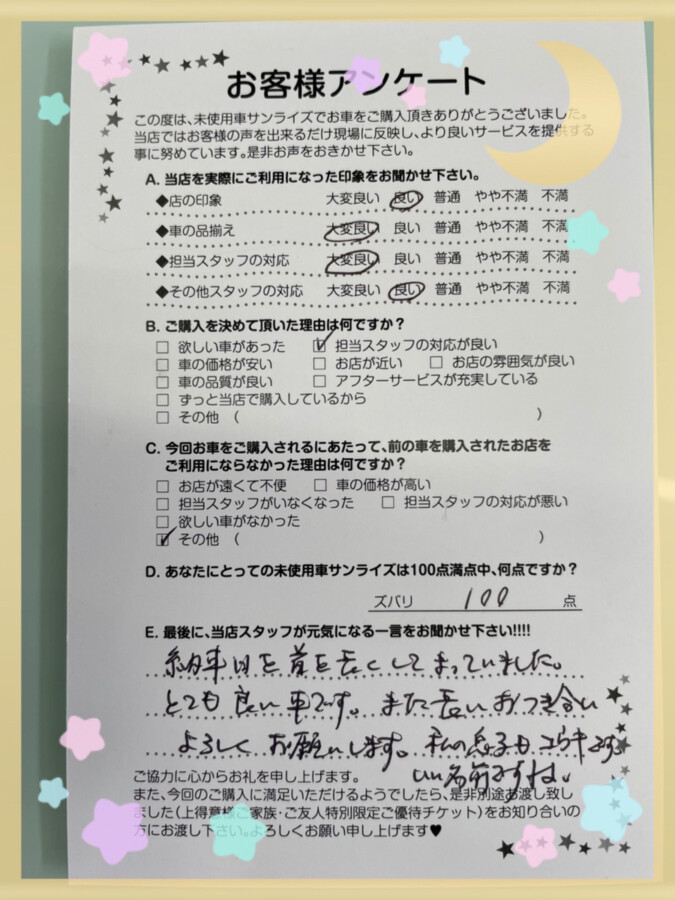 お客様アンケート
この度は、未使用車サンライズでお車をご購入頂きありがとうございました。
当店ではお客様の声を出来るだけ現場に反映し、より良いサービスを提供する
事に努めています。是非お声をおきかせ下さい。
A. 当店を実際にご利用になった印象をお聞かせ下さい。
◆店の印象 大変良い 良い 普通 やや不満 不満
◆車の品揃え 大変良い 良い 普通 やや不満 不満
◆担当スタッフの対応 大変良い 良い 普通 やや不満 不満
◆その他スタッフの対応 大変良い 良い 普通 やや不満 不満
B. ご購入を決めて頂いた理由は何ですか？
□ 欲しい車があった ☑ 担当スタッフの対応が良い
□ 車の価格が安い □ お店が近い □ お店の雰囲気が良い
□ 車の品質が良い □ アフターサービスが充実している
□ ずっと当店で購入しているから
□ その他（ ）
C. 今回お車をご購入されるにあたって、前の車を購入されたお店を
ご利用にならなかった理由は何ですか？
□ お店が遠くて不便 □ 車の価格が高い
□ 担当スタッフがいなくなった □ 担当スタッフの対応が悪い
□ 欲しい車がなかった
☑ その他（ ）
D. あなたにとっての未使用車サンライズは100点満点中、何点ですか？
ズバリ 100 点
E. 最後に、当店スタッフが元気になる一言をお聞かせ下さい!!!!
納車日を首を長くしてまっていました。
とても良い車です。また長いおつき合い
よろしくお願いします。私の息子もユウキです。
いい名前ですね。
ご協力に心からお礼を申し上げます。
また、今回のご購入に満足いただけるようでしたら、是非別途お渡し致し
ました（上得意様ご家族・ご友人特別限定ご優待チケット）をお知り合いの
方にお渡し下さい。よろしくお願い申し上げます♥